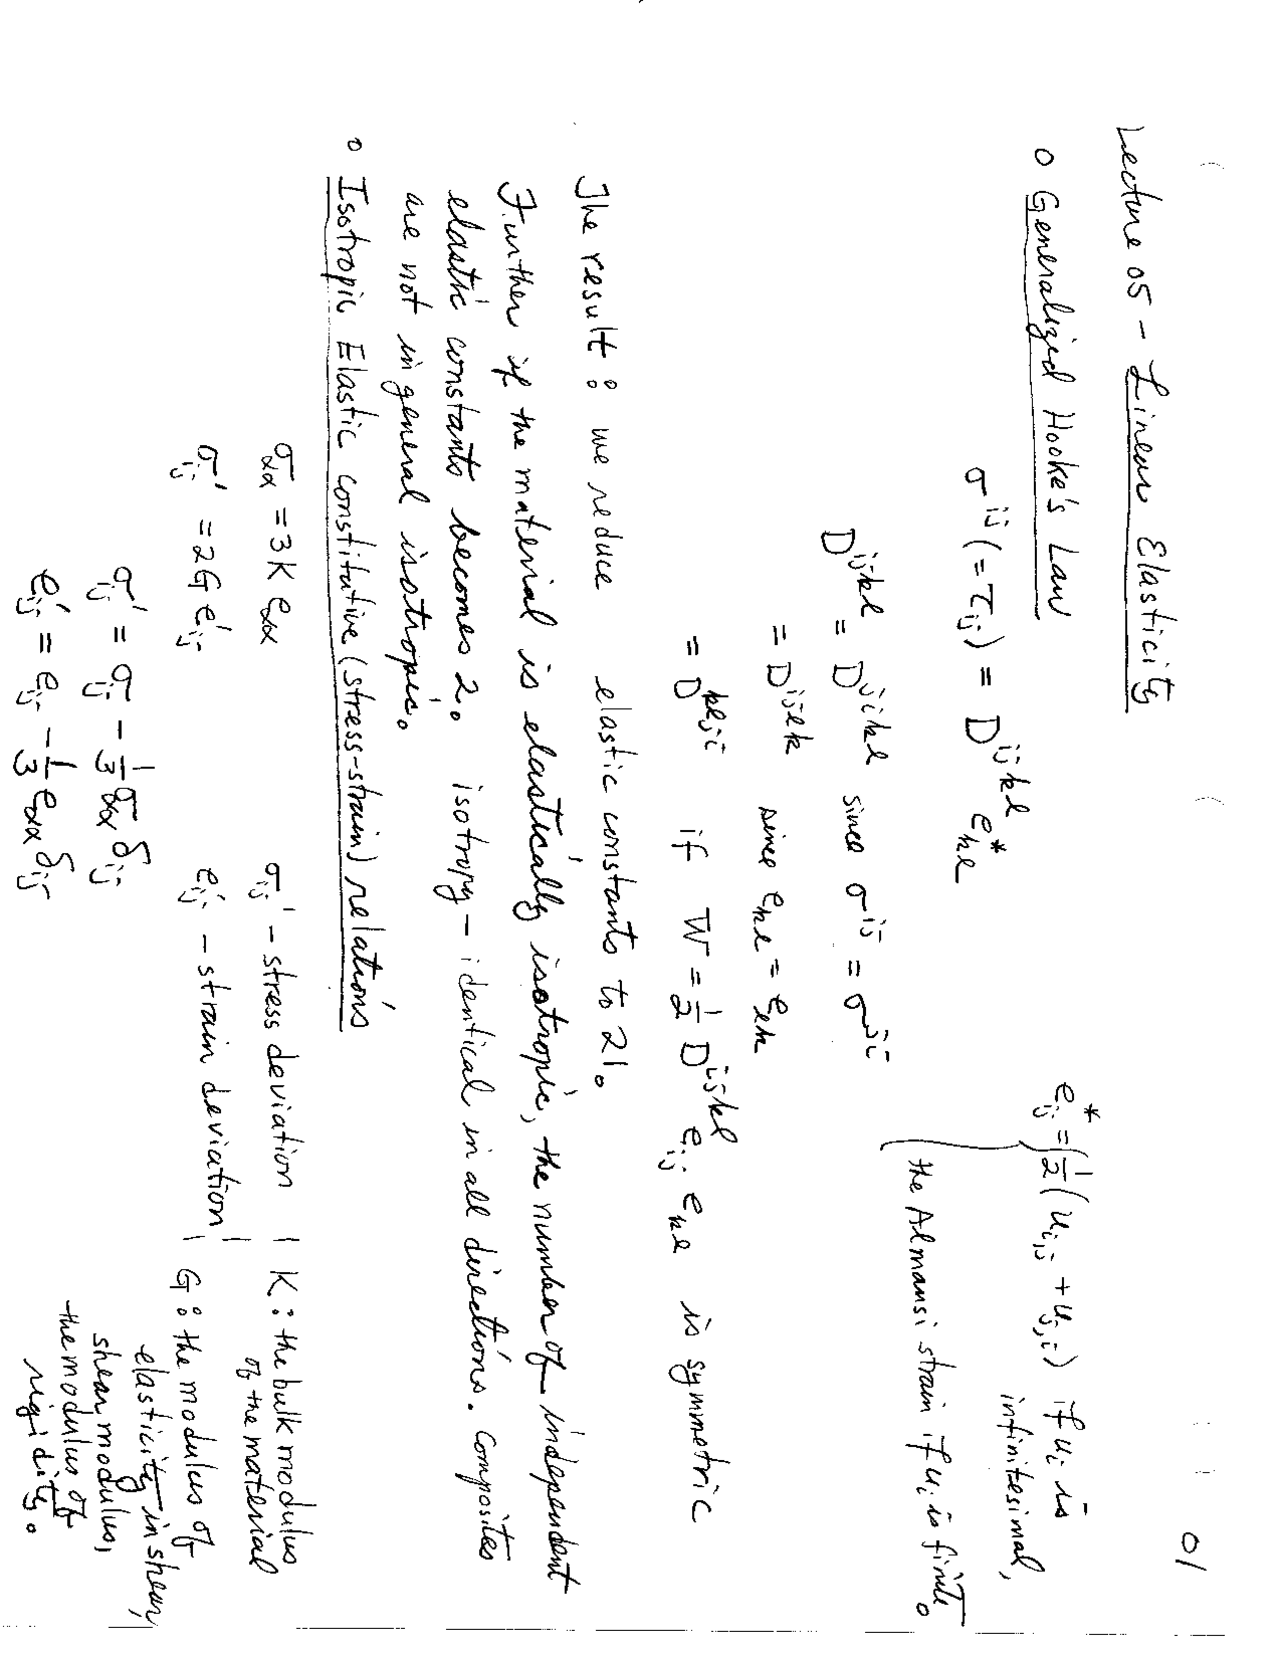 01
Lecture 05 - Linear Elasticity
o Generalized Hooke's Law
σ^{ij} (= τ_{ij}) = D^{ijkl} e*_{kl}
e*_{ij} = { 1/2 (u_{i,j} + u_{j,i}) if u_i is
infinitesimal,
the Almansi strain if u_i is finite.
D^{ijkl} = D^{jikl} since σ^{ij} = σ^{ji}
= D^{ijlk} since e_{kl} = e_{lk}
= D^{klji} if W = 1/2 D^{ijkl} e_{ij} e_{kl} is symmetric
The result : we reduce elastic constants to 21.
Further if the material is elastically isotropic, the number of independent
elastic constants becomes 2. isotropy - identical in all directions. Composites
are not in general isotropic.
o Isotropic Elastic constitutive (stress-strain) relations
σ_{αα} = 3K e_{αα}
σ_{ij}' = 2G e_{ij}'
σ_{ij}' = σ_{ij} - 1/3 σ_{αα} δ_{ij}
e_{ij}' = e_{ij} - 1/3 e_{αα} δ_{ij}
σ_{ij}' - stress deviation
e_{ij}' - strain deviation
K : the bulk modulus
of the material
G : the modulus of
elasticity in shear,
shear modulus,
the modulus of
rigidity.